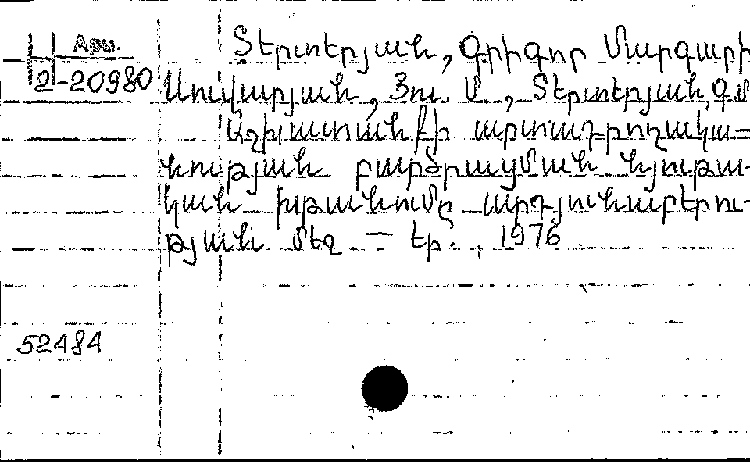 Арм.
2-20980
Տերտերյան, Գրիգոր Մարգարի
Սուվարյան, Յու. Մ., Տերտերյան, Գ.Մ.
Աշխատանքի արտադրողակա-
նության բարձրացման նյութա-
կան խթանումը արդյունաբերու-
թյան մեջ – Եր., 1976
52484